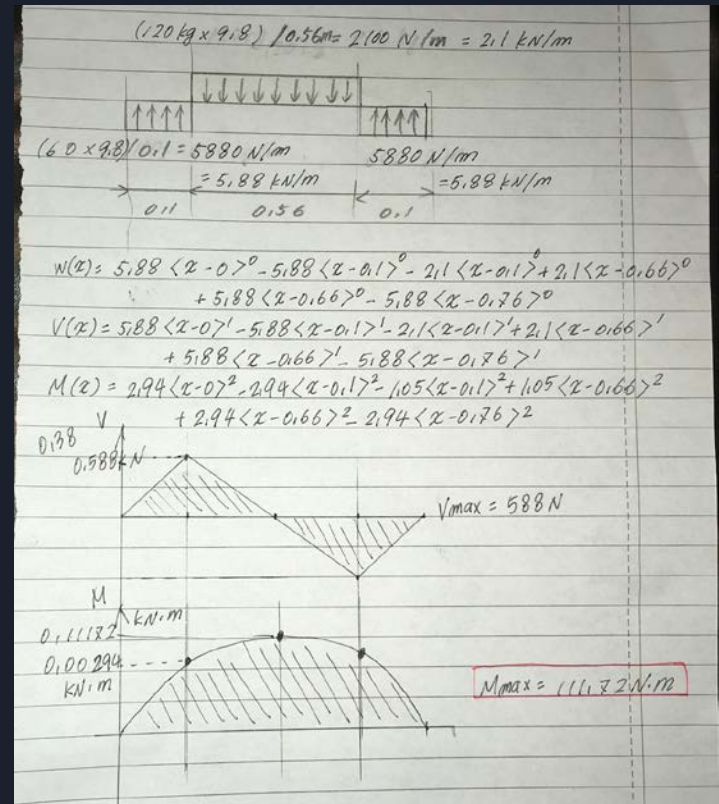 (120 kg x 9.8) / 0.56m = 2100 N/m = 2.1 kN/m
(60 x 9.8)/0.1 = 5880 N/m 5880 N/m
= 5.88 kN/m =5.88 kN/m
0.1 0.56 0.1
W(x) = 5.88 <x-0>⁰ - 5.88 <x-0.1>⁰ - 2.1 <x-0.1>⁰ + 2.1 <x-0.66>⁰
+ 5.88 <x-0.66>⁰ - 5.88 <x-0.76>⁰
V(x) = 5.88 <x-0>¹ - 5.88 <x-0.1>¹ - 2.1 <x-0.1>¹ + 2.1 <x-0.66>¹
+ 5.88 <x-0.66>¹ - 5.88 <x-0.76>¹
M(x) = 2.94 <x-0>² - 2.94 <x-0.1>² - 1.05 <x-0.1>² + 1.05 <x-0.66>²
+ 2.94 <x-0.66>² - 2.94 <x-0.76>²
V
0.38
0.588kN
Vmax = 588 N
M
kN.m
0.11172
0.00294
kN.m
Mmax = 111.72 N.m